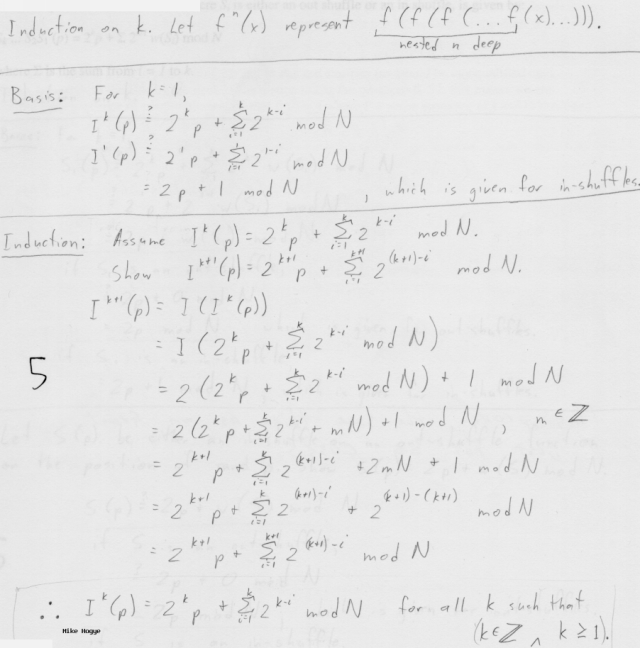 Induction on k. Let fⁿ(x) represent f(f(f(...f(x)...))).
nested n deep
Basis: For k=1,
I^k(p) ≟ 2^k p + Σ_{i=1}^{k} 2^{k-i} mod N
I^1(p) ≟ 2^1 p + Σ_{i=1}^{1} 2^{1-i} mod N
= 2p + 1 mod N, which is given for in-shuffles.
Induction: Assume I^k(p) = 2^k p + Σ_{i=1}^{k} 2^{k-i} mod N.
Show I^{k+1}(p) = 2^{k+1} p + Σ_{i=1}^{k+1} 2^{(k+1)-i} mod N.
I^{k+1}(p) = I(I^k(p))
= I(2^k p + Σ_{i=1}^{k} 2^{k-i} mod N)
5
= 2(2^k p + Σ_{i=1}^{k} 2^{k-i} mod N) + 1 mod N
= 2(2^k p + Σ_{i=1}^{k} 2^{k-i} + mN) + 1 mod N, m ∈ ℤ
= 2^{k+1} p + Σ_{i=1}^{k} 2^{(k+1)-i} + 2mN + 1 mod N
= 2^{k+1} p + Σ_{i=1}^{k} 2^{(k+1)-i} + 2^{(k+1)-(k+1)} mod N
= 2^{k+1} p + Σ_{i=1}^{k+1} 2^{(k+1)-i} mod N
∴ I^k(p) = 2^k p + Σ_{i=1}^{k} 2^{k-i} mod N for all k such that
(k∈ℤ ∧ k ≥ 1).
Mike Hogye